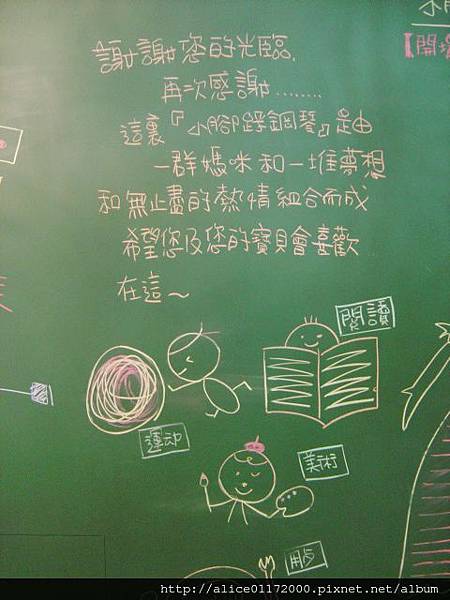 謝謝您的光臨,
再次感謝........
這裏『小腳ㄚ鋼琴』是由
一群媽咪和一堆夢想
和無止盡的熱情組合而成
希望您及您的寶貝會喜歡
在這~
閱讀
運动
美術
用点
http://alice01172000.pixnet.net/album